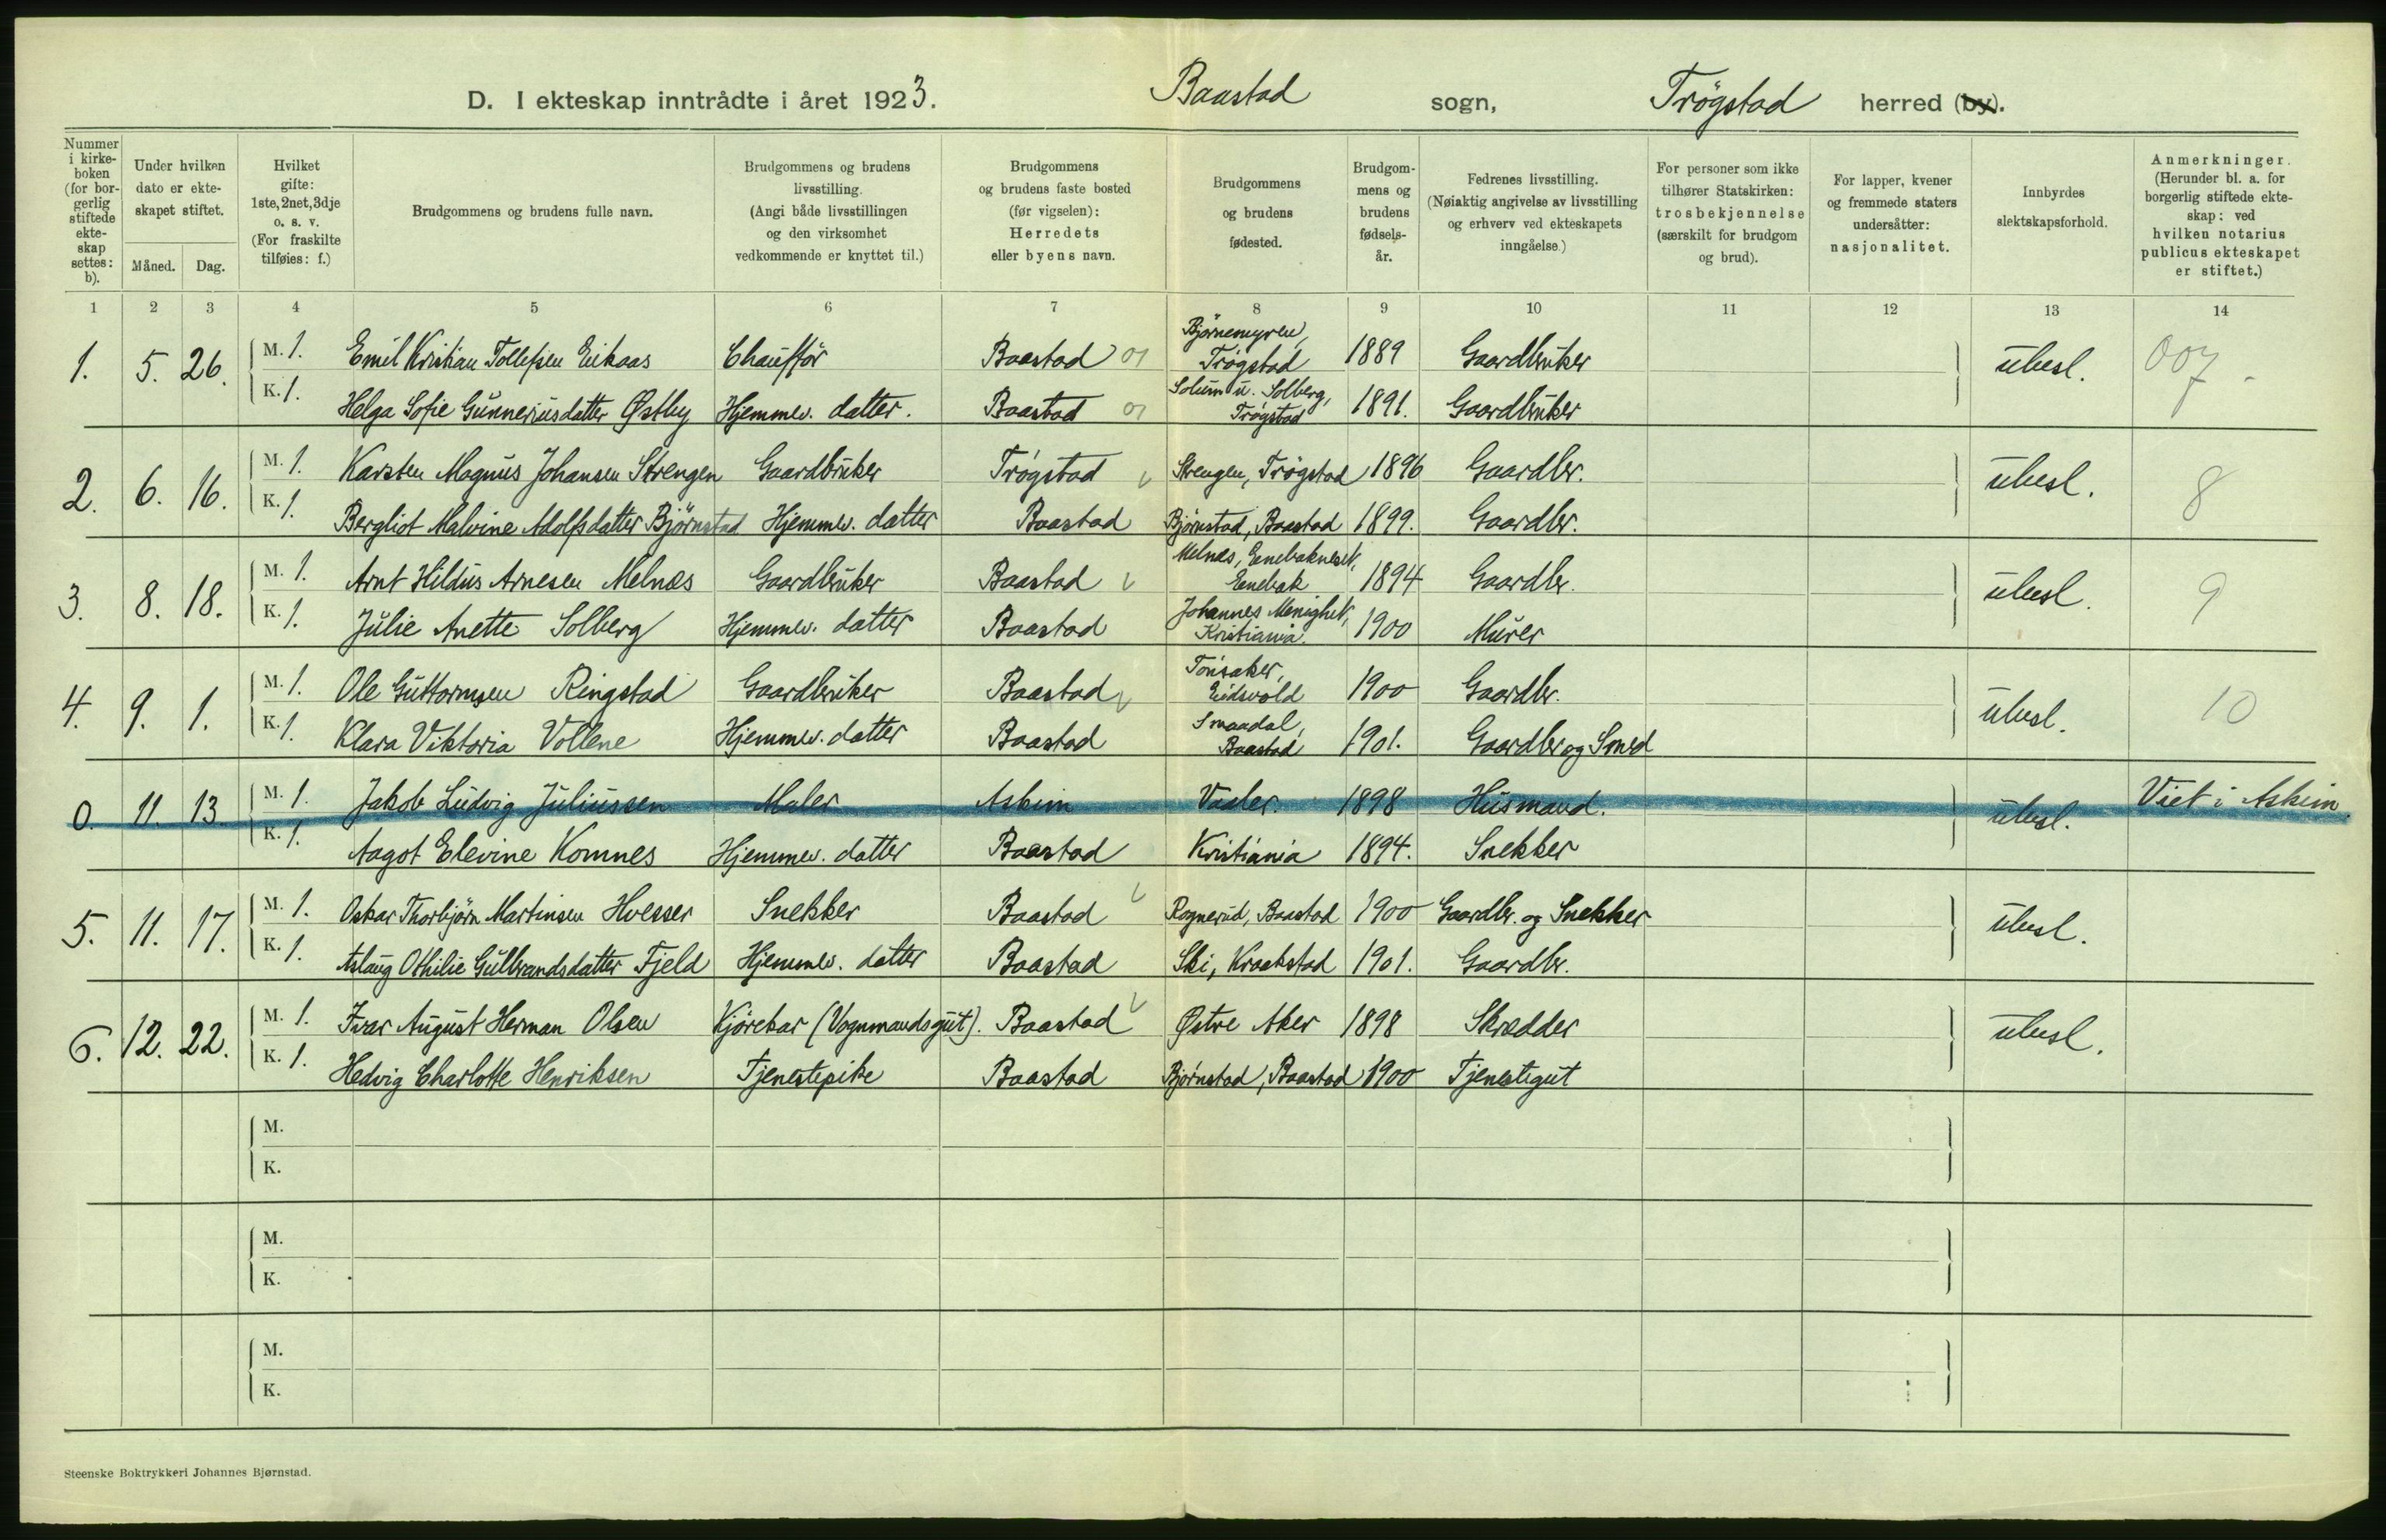 D. I ekteskap inntrådte i året 1923. Baastad sogn, Trögstad herred (by).
Nummer i kirkeboken (for borgerlig stiftede ekteskap settes: b).
Under hvilken dato er ekteskapet stiftet.
Måned. Dag.
Hvilket gifte: 1ste, 2net, 3dje o. s. v. (For fraskilte tilføies: f.)
Brudgommens og brudens fulle navn.
Brudgommens og brudens livsstilling. (Angi både livsstillingen og den virksomhet vedkommende er knyttet til.)
Brudgommens og brudens faste bosted (før vigselen): Herredets eller byens navn.
Brudgommens og brudens fødested.
Brudgommens og brudens fødselsår.
Fedrenes livsstilling. (Nøiaktig angivelse av livsstilling og erhverv ved ekteskapets inngåelse.)
For personer som ikke tilhører Statskirken: trosbekjennelse (særskilt for brudgom og brud).
For lapper, kvener og fremmede staters undersåtter: nasjonalitet.
Innbyrdes slektskapsforhold.
Anmerkninger. (Herunder bl. a. for borgerlig stiftede ekteskap: ved hvilken notarius publicus ekteskapet er stiftet.)
1 2 3 4 5 6 7 8 9 10 11 12 13 14
1. 5. 26. M. 1. Emil Kristian Tollefsen Eikaas Chaufför Baastad 01 Björnemyren, Trögstad 1889 Gaardbruker ubesl. 007
K. 1. Helga Sofie Gunneriusdatter Østby Hjemmev. datter. Baastad 01 Solum u. Solberg, Trögstad 1891. Gaardbruker
2. 6. 16. M. 1. Karsten Magnus Johansen Strengen Gaardbruker Trögstad Strengen, Trögstad 1896 Gaardbr. ubesl. 8
K. 1. Bergliot Malvine Adolfsdatter Björnstad Hjemmev. datter Baastad Björnstad, Baastad 1899. Gaardbr.
3. 8. 18. M. 1. Arnt Hildus Arnesen Melnæs Gaardbruker Baastad Melnæs, Enebakneset, Enebak 1894 Gaardbr. ubesl. 9
K. 1. Julie Anette Solberg Hjemmev. datter Baastad Johannes Menighet, Kristiania. 1900 Murer
4. 9. 1. M. 1. Ole Guttormsen Ringstad Gaardbruker Baastad Tönsaker, Eidsvold 1900 Gaardbr. ubesl. 10
K. 1. Klara Viktoria Vollene Hjemmev. datter Baastad Smaadal, Baastad 1901. Gaardbr og Smed
0. 11. 13. M. 1. Jakob Ludvig Juliussen Maler Askim Vaaler. 1898 Husmand. ubesl. Viet i Askim
K. 1. Aagot Elevine Komnes Hjemmev. datter Baastad Kristiania 1894. Snekker
5. 11. 17. M. 1. Oskar Thorbjörn Martinsen Hvesser Snekker Baastad Ragnerud, Baastad 1900 Gaardbr. og Snekker ubesl.
K. 1. Aslaug Othilie Gulbrandsdatter Fjeld Hjemmev. datter Baastad Ski, Kraakstad 1901. Gaardbr.
6. 12. 22. M. 1. Ivar August Herman Olsen Kjörekar (Vognmandsgut). Baastad Østre Aker 1898 Skrædder ubesl.
K. 1. Hedvig Charlotte Henriksen Tjenestepike Baastad Björnstad, Baastad 1900 Tjenestegut
M.
K.
M.
K.
M.
K.
Steenske Boktrykkeri Johannes Bjørnstad.